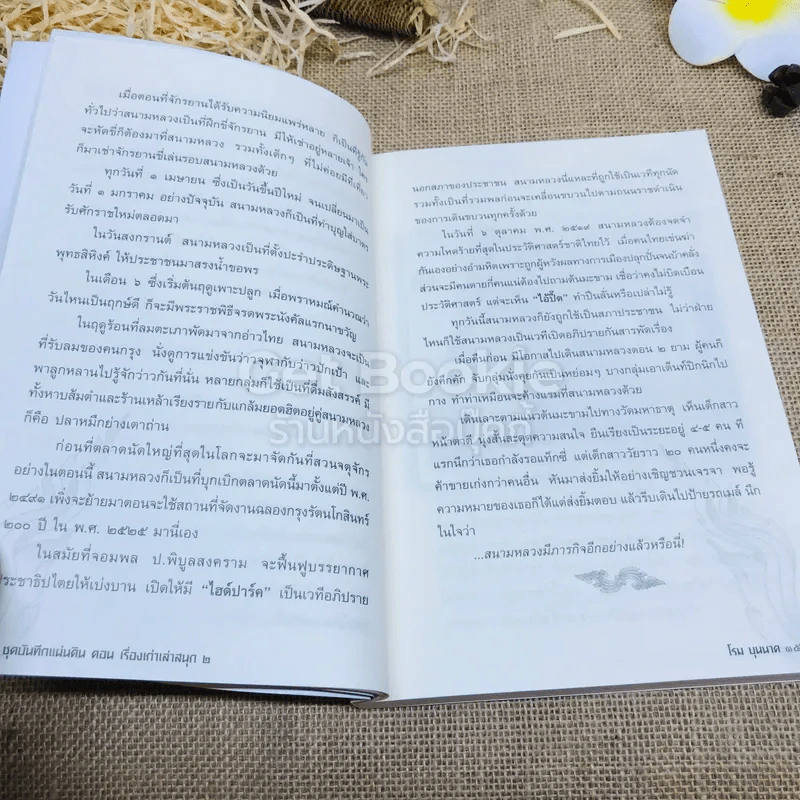 เมื่อตอนที่จักรยานได้รับความนิยมแพร่หลาย ก็เป็นที่รู้กัน
ทั่วไปว่าสนามหลวงเป็นที่ฝึกขี่จักรยาน มีให้เช่าอยู่หลายเจ้า ใคร
จะหัดขี่ก็ต้องมาที่สนามหลวง รวมทั้งเด็กๆ ที่ไม่ค่อยมีที่เที่ยว
ก็มาเช่าจักรยานขี่เล่นรอบสนามหลวงด้วย
ทุกวันที่ ๑ เมษายน ซึ่งเป็นวันขึ้นปีใหม่ จนเปลี่ยนมาเป็น
วันที่ ๑ มกราคม อย่างปัจจุบัน สนามหลวงก็เป็นที่ทำบุญใส่บาตร
รับศักราชใหม่ตลอดมา
ในวันสงกรานต์ สนามหลวงเป็นที่ตั้งปะรำประดิษฐานพระ
พุทธสิหิงค์ ให้ประชาชนมาสรงน้ำขอพร
ในเดือน ๖ ซึ่งเริ่มต้นฤดูเพาะปลูก เมื่อพราหมณ์คำนวณว่า
วันไหนเป็นฤกษ์ดี ก็จะมีพระราชพิธีจรดพระนังคัลแรกนาขวัญ
ในฤดูร้อนที่ลมตะเภาพัดมาจากอ่าวไทย สนามหลวงจะเป็น
ที่รับลมของคนกรุง นั่งดูการแข่งขันว่าวจุฬากับว่าวปักเป้า และ
พาลูกหลานไปรู้จักว่าวกันที่นั่น หลายกลุ่มก็ใช้เป็นที่ดื่มสังสรรค์ มี
ทั้งหาบส้มตำและร้านเหล้าเรียงรายกับแกล้มยอดฮิตอยู่คู่สนามหลวง
ก็คือ ปลาหมึกย่างเตาถ่าน
ก่อนที่ตลาดนัดใหญ่ที่สุดในโลกจะมาจัดกันที่สวนจตุจักร
อย่างในตอนนี้ สนามหลวงก็เป็นที่บุกเบิกตลาดนัดนี้มาตั้งแต่ปี พ.ศ.
๒๔๙๑ เพิ่งจะย้ายมาตอนจะใช้สถานที่จัดงานฉลองกรุงรัตนโกสินทร์
๒๐๐ ปี ใน พ.ศ. ๒๕๒๕ มานี่เอง
ในสมัยที่จอมพล ป.พิบูลสงคราม จะฟื้นฟูบรรยากาศ
ประชาธิปไตยให้เบ่งบาน เปิดให้มี “ไฮด์ปาร์ค” เป็นเวทีอภิปราย
ชุดบันทึกแผ่นดิน ตอน เรื่องเก่าเล่าสนุก ๒
นอกสภาของประชาชน สนามหลวงนี่แหละที่ถูกใช้เป็นเวทีทุกนัด
รวมทั้งเป็นที่รวมพลก่อนจะเคลื่อนขบวนไปตามถนนราชดำเนิน
ของการเดินขบวนทุกครั้งด้วย
ในวันที่ ๖ ตุลาคม พ.ศ. ๒๕๑๙ สนามหลวงต้องจดจำ
ความโหดร้ายที่สุดในประวัติศาสตร์ชาติไทยไว้ เมื่อคนไทยเข่นฆ่า
กันเองอย่างอำมหิตเพราะถูกผู้หวังผลทางการเมืองปลุกปั่นจนบ้าคลั่ง
ส่วนจะมีคนตายกี่คนแน่ต้องไปถามต้นมะขาม เชื่อว่าคงไม่บิดเบือน
ประวัติศาสตร์ แต่จะเห็น “ไอ้ปื๊ด” ทำปืนลั่นหรือเปล่าไม่รู้
ทุกวันนี้สนามหลวงก็ยังถูกใช้เป็นสภาประชาชน ไม่ว่าฝ่าย
ไหนก็ใช้สนามหลวงเป็นเวทีเปิดอภิปรายกันสารพัดเรื่อง
เมื่อคืนก่อน มีโอกาสไปเดินสนามหลวงตอน ๒ ยาม ผู้คนก็
ยังคึกคัก จับกลุ่มนั่งคุยกันเป็นหย่อมๆ บางกลุ่มเอาเต็นท์ปิกนิกไป
กาง ทำท่าเหมือนจะค้างแรมที่สนามหลวงด้วย
เดินเลาะตามแนวต้นมะขามไปทางวัดมหาธาตุ เห็นเด็กสาว
หน้าตาดี นุ่งสั้นสะดุดความสนใจ ยืนเรียงเป็นระยะอยู่ ๔-๕ คน ที
แรกนึกว่าเธอกำลังรอแท็กซี่ แต่เด็กสาววัยราว ๒๐ คนหนึ่งคงจะ
ค้าขายเก่งกว่าคนอื่น หันมาส่งยิ้มให้อย่างเชิญชวนเจรจา พอรู้
ความหมายของเธอก็ได้แต่ส่งยิ้มตอบ แล้วรีบเดินไปป้ายรถเมล์ นึก
ในใจว่า
...สนามหลวงมีภารกิจอีกอย่างแล้วหรือนี่!
โรม บุนนาค ๑๕
Get Bookie
ร้านหนังสือมือกุ๊กกิ๊